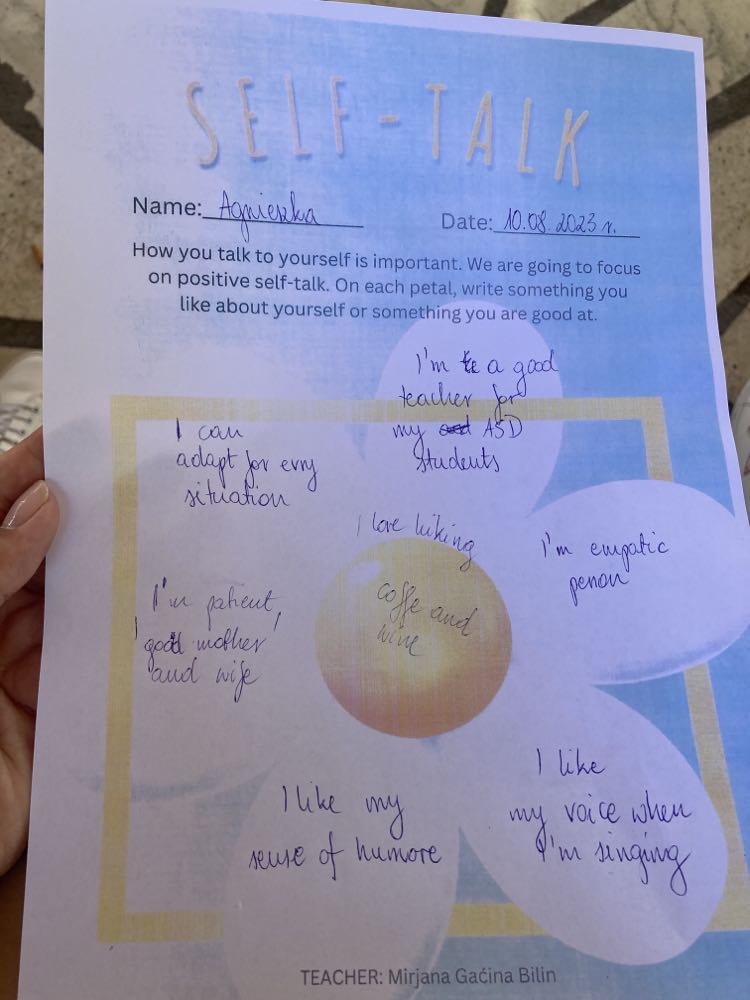 SELF-TALK
Name: Agnieszka
Date: 10.08.2023 r.
How you talk to yourself is important. We are going to focus
on positive self-talk. On each petal, write something you
like about yourself or something you are good at.
I'm a good
teacher for
my ASD
students
I can
adapt for evry
situation
I love hiking
coffe and
wine
I'm empatic
person
I'm patient,
good mother
and wife
I like
my voice when
I'm singing
I like my
sense of humore
TEACHER: Mirjana Gaćina Bilin